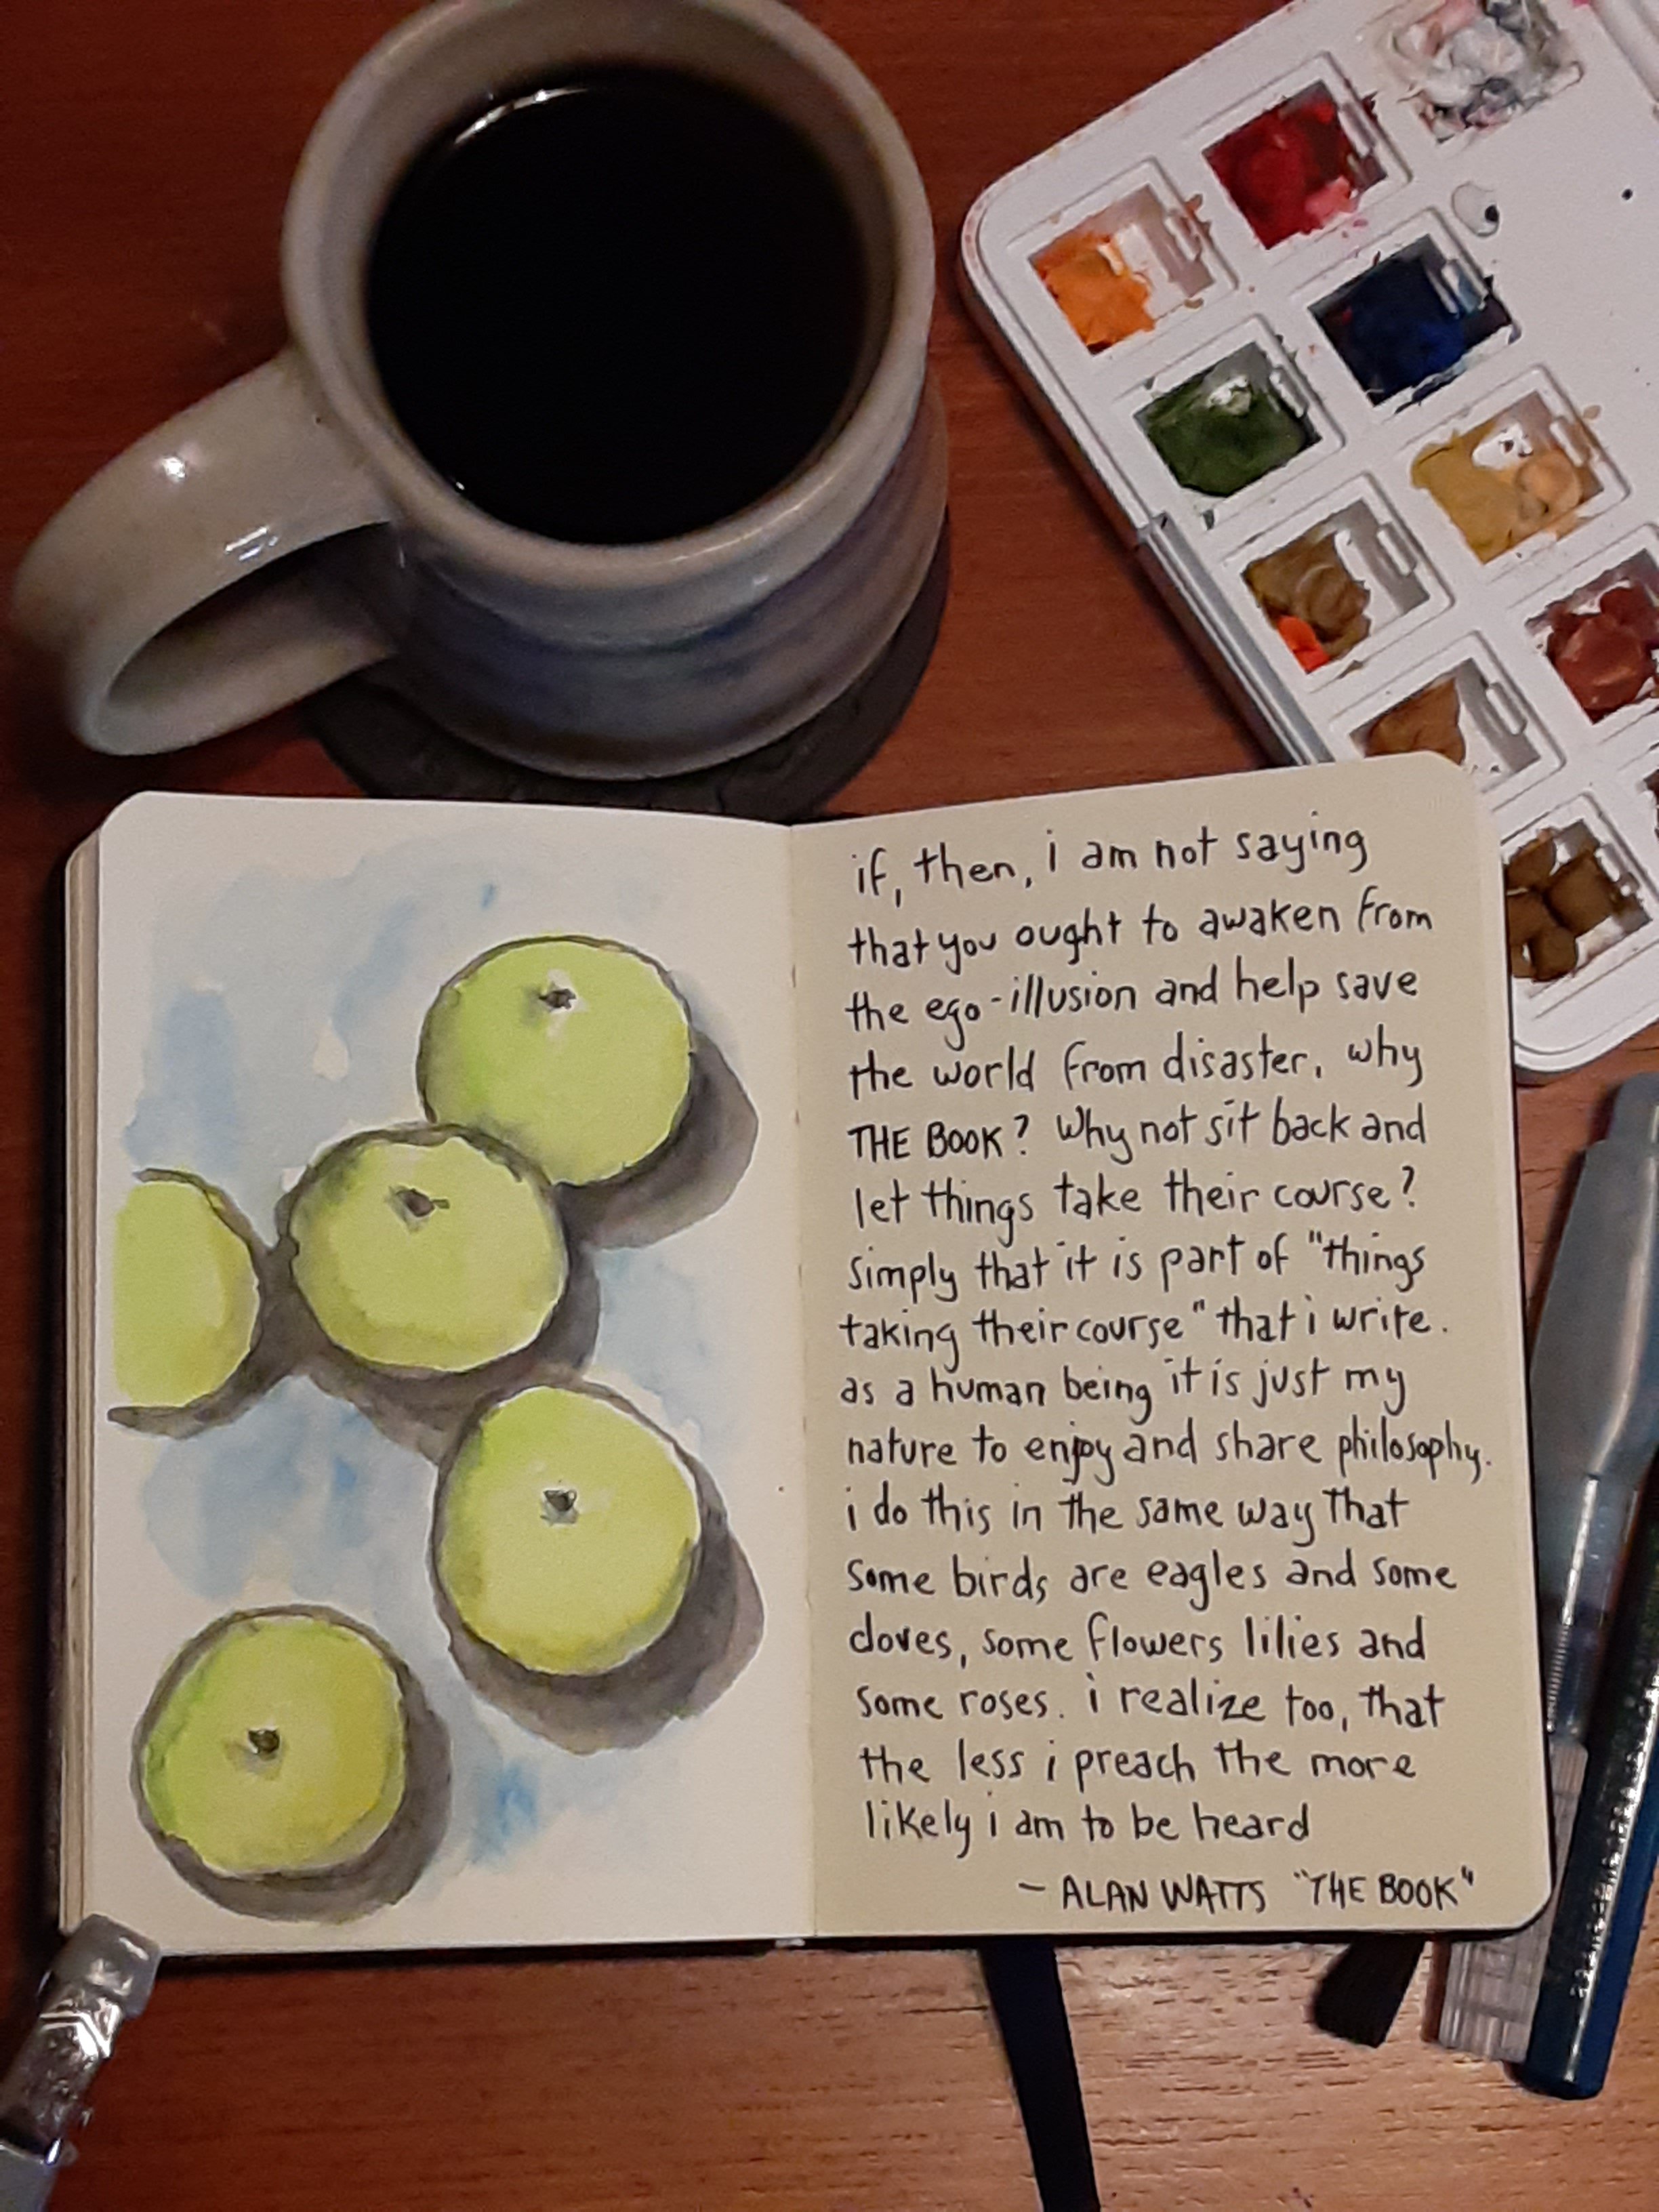 if, then, i am not saying
that you ought to awaken from
the ego-illusion and help save
the world from disaster, why
THE BOOK? Why not sit back and
let things take their course?
simply that it is part of "things
taking their course" that i write.
as a human being it is just my
nature to enjoy and share philosophy.
i do this in the same way that
some birds are eagles and some
doves, some flowers lilies and
some roses. i realize too, that
the less i preach the more
likely i am to be heard
- ALAN WATTS "THE BOOK"